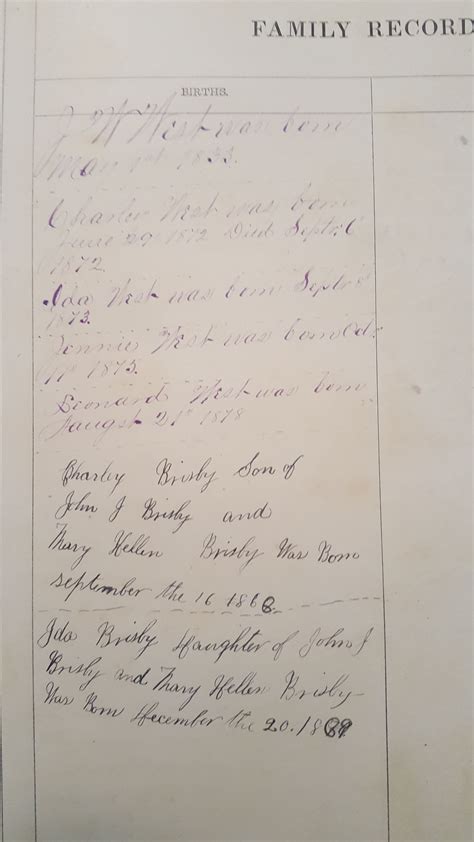 FAMILY RECORD
BIRTHS.
J W West was born
1833.
Charlie West was born
June 29 1872 Died Septr 6
1872
Ida West was born Septr
1873.
Jennie West was born Oct
1875.
Leonard West was born
Augst 21st 1878
Charley Brisby Son of
John J Brisby and
Mary Hellen Brisby Was Born
september the 16 1868
Ida Brisby Daughter of John J
Brisby and Mary Hellen Brisby
Was Born December the 20. 18